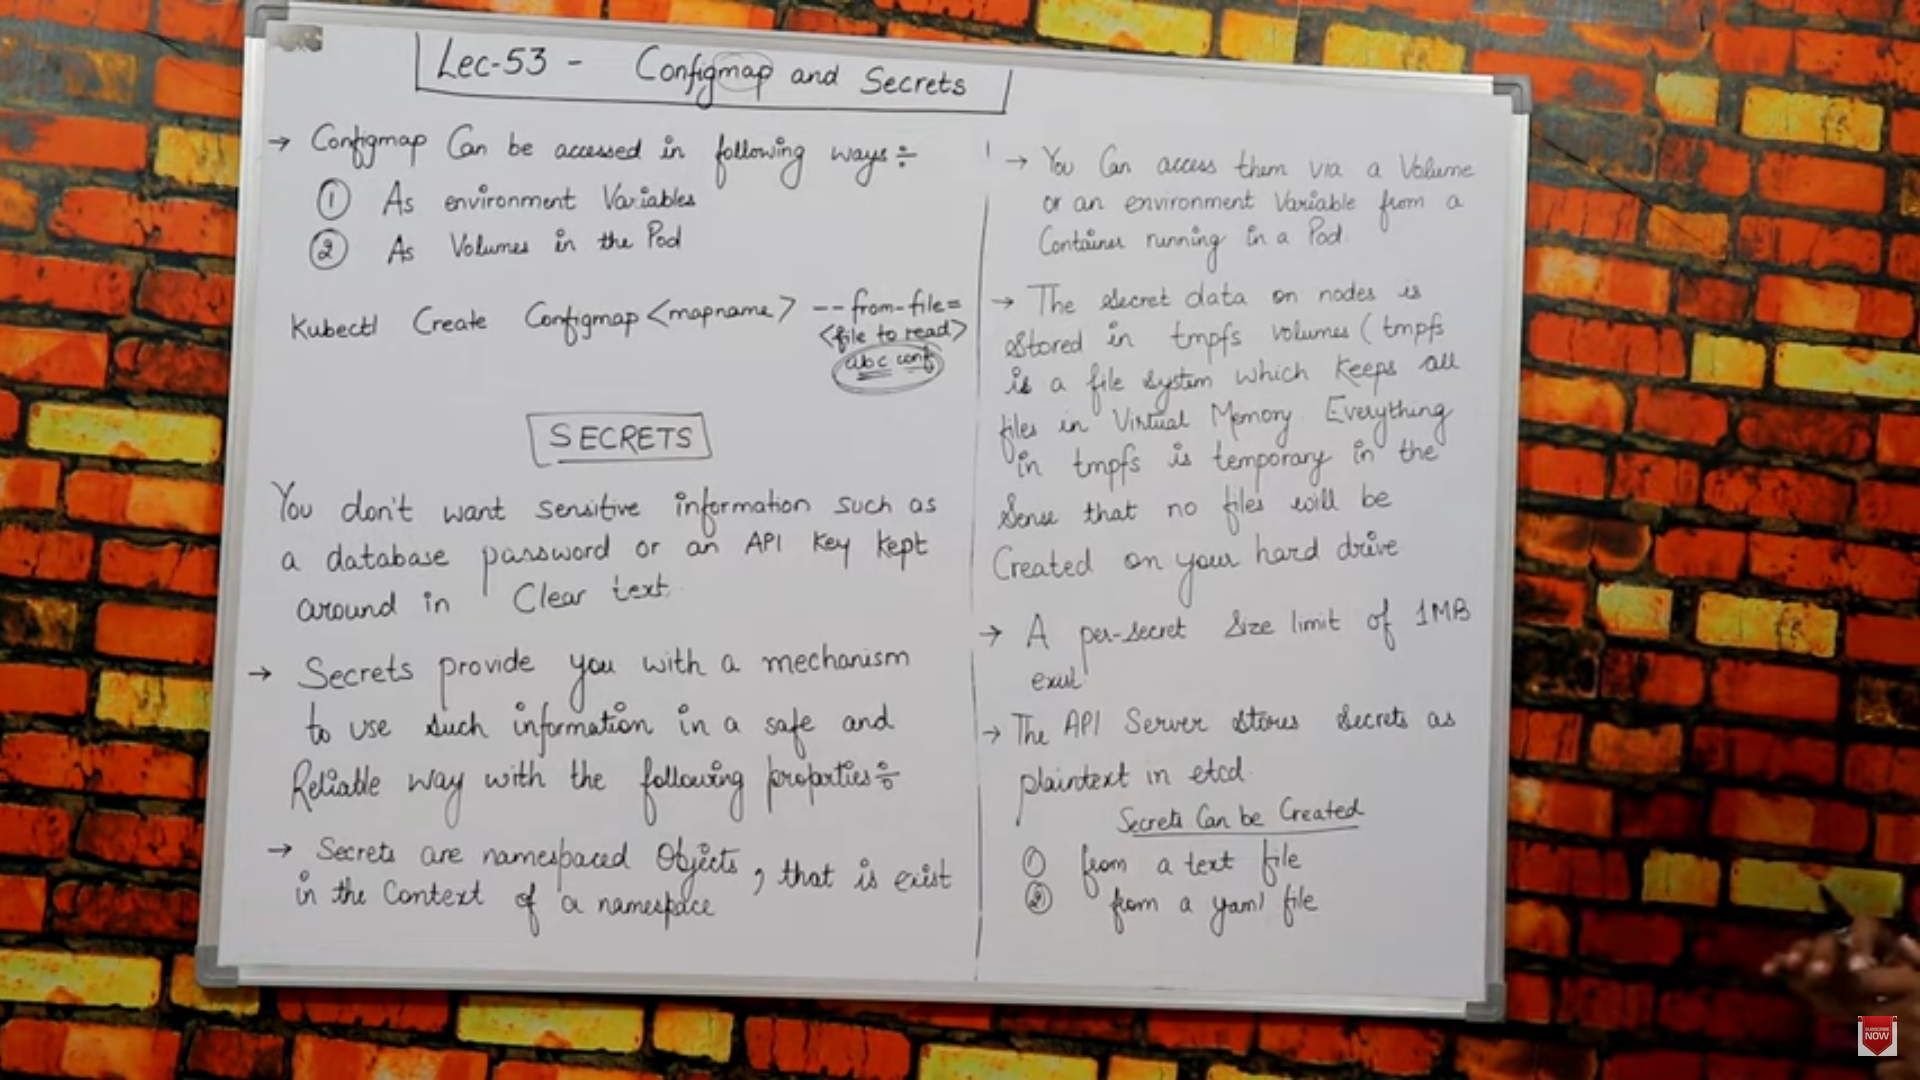 Lec-53 - Configmap and Secrets
→ Configmap Can be accessed in following ways÷
① As environment Variables
② As Volumes in the Pod
Kubectl Create Configmap <mapname> --from-file=
<file to read>
abc conf
SECRETS
You don't want sensitive information such as
a database password or an API Key kept
around in Clear text.
→ Secrets provide you with a mechanism
to use such information in a safe and
Reliable way with the following properties÷
→ Secrets are namespaced Objects, that is exist
in the Context of a namespace
→ You Can access them via a Volume
or an environment Variable from a
Container running in a Pod.
→ The secret data on nodes is
stored in tmpfs volumes (tmpfs
is a file system which keeps all
files in Virtual Memory. Everything
in tmpfs is temporary in the
Sense that no files will be
Created on your hard drive
→ A per-secret size limit of 1MB
→ The API Server stores secrets as
plaintext in etcd.
Secrets Can be Created
① from a text file
② from a yaml file
SUBSCRIBE
NOW